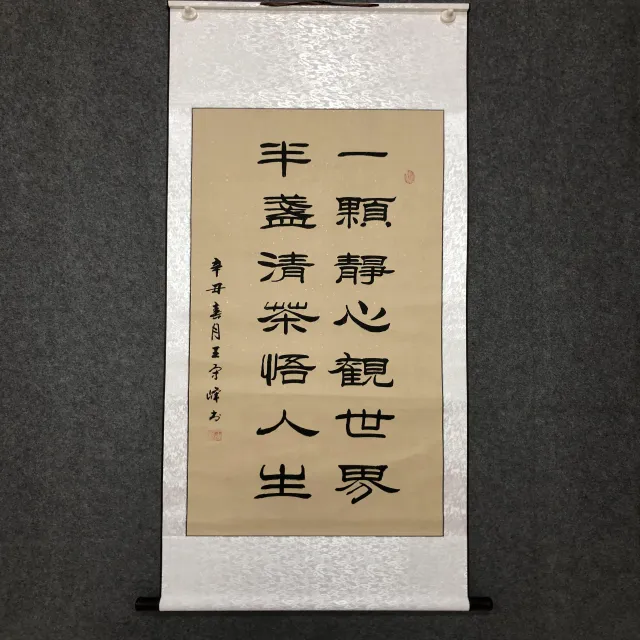 一顆静心觀世界
半盞清茶悟人生
辛丑春月王守峰书